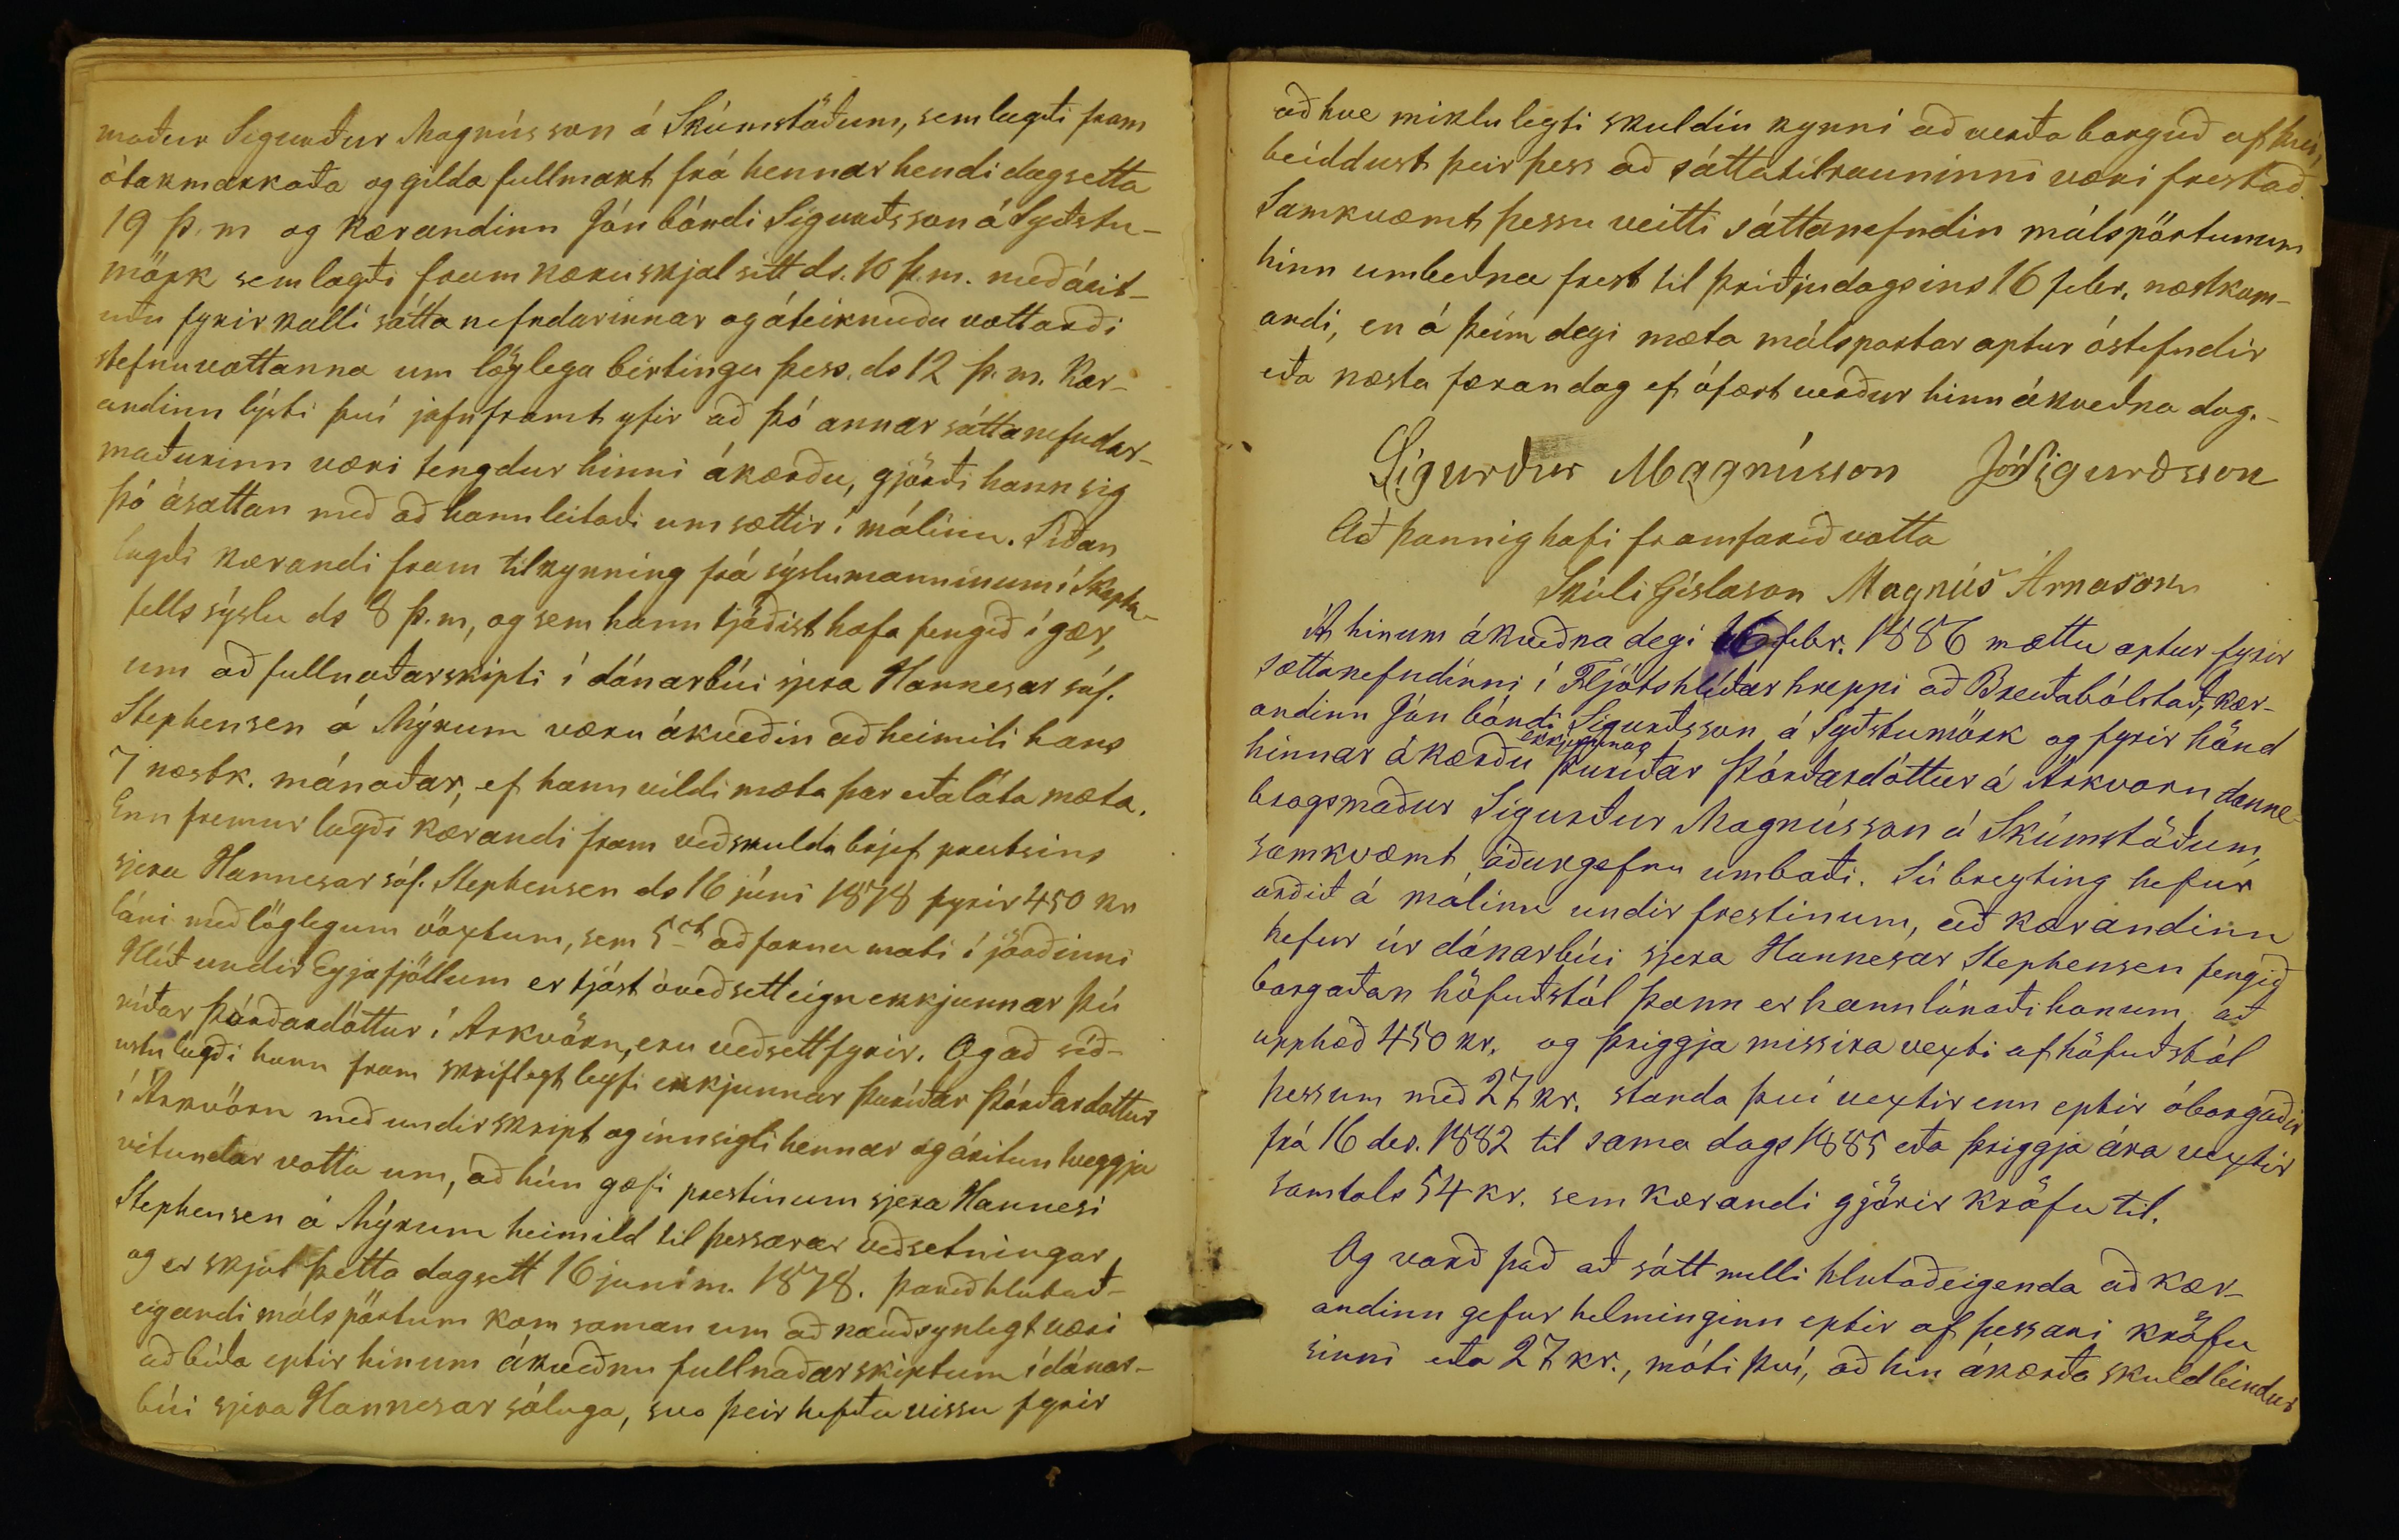 maður Sigurður Magnússon á Skúmstöðum, sem lagði fram
ótakmarkaða og gilda fullmakt frá hennar hendi dagsetta
19 þ. m og kærandinn Jón bóndi Sigurðsson á Syðstu-
mörk sem lagði fram kæruskjal sitt ds. 10 þ.m. með árit-
uðu fyrirkalli sáttanefndarinnar og áteiknuðu vottorði
stefnuvottanna um löglega birtingu þess, ds 12 þ. m. Kær-
andinn lýsti því jafnframt yfir að þó annar sáttanefndar-
maðurinn væri tengdur hinni ákærðu, gjörði hann sig
þó ásáttan með að hann leitaði um sættir í málinu. Síðan
lagði kærandi fram tilkynning frá sýslumanninum í Skapta-
fells sýslu ds 8 þ. m, og sem hann tjáðist hafa fengið í gær,
um að fullnaðarskipti í dánarbúi sjera Hannesar sál.
Stephensen á Mýrum væru ákveðin að heimili hans
7 næstk. mánaðar, ef hann vildi mæta þar eða láta mæta.
Enn fremur lagði kærandi fram veðskuldabrjef prestsins
sjera Hannesar sál. Stephensen ds 16 júni 1878 fyrir 450 kr
láni með löglegum vöxtum, sem 5 að fornu mati í jörðinni
Hlíð undir Eyjafjöllum er tjást óveðsett eign ekkjunnar Þú
ríðar Þórðardóttur í Arkvörn, eru veðsett fyrir. Og að síð-
ustu lagði hann fram skriflegt leyfi ekkjunnar Þuríðar Þórðardottur
í Arkvörn með undirskript og innsigli hennar og áritun tveggja
vitundar votta um, að hún gæfi prestinum sjera Hannesi
Stephensen á Mýrum heimild til þessarar veðsetningar
og er skjal þetta dagsett 16 juním. 1878. Þareð hlutað-
eigandi málspörtum kom saman um að nauðsynlegt væri
að bíða eptir hinum ákveðnu fullnaðarskiptum í dánar-
búi sjera Hannesar sáluga, svo þeir hefðu vissu fyrir
að hve miklu leyti skuldin kynni að verða borguð af því,
beiddust þeir þess að sáttatilrauninni væri frestað.
Samkvæmt þessu veitti sáttanefndin málspörtunum
hinn umbeðna frest til þriðjudagsins 16 febr. næstkom-
andi, en á þeim degi mæta málspartar aptur óstefndir
eða næsta færan dag ef ófært verður hinn ákveðna dag.-
Sigurður Magnússon Jón Sigurðsson
Að þannig hafi framfarið votta
Skúli Gíslason Magnús Árnason
Á hinum ákveðna degi 16 febr. 1886 mættu aptur fyrir
sáttanefndinni í Fljótshlíðarhreppi að Breiðabólstað, kær-
andinn Jón bóndi Sigurðsson á Syðstumörk og fyrir hönd
hinnar ákærðu ekkjunnar Þuríðar Þórðardóttur á Arkvörn danne-
brogsmaður Sigurður Magnússon á Skúmstöðum,
samkvæmt áðurgefnu umboði. Sú breyting hefur
orðið á málinu undir frestinum, að kærandinn
hefur úr dánarbúi sjera Hannesar Stephensen fengið
borgaðan höfuðstól þann er hann lánaði honum, að
upphæð 450 kr. og þriggja missira vexti af höfuðstól
þessum með 27 kr. standa því vextir enn eptir óborgaðir
frá 16 des. 1882 til sama dags 1885 eða þriggja ára vextir
samtals 54 kr. sem kærandi gjörir kröfu til.
Og varð það að sátt milli hlutaðeigenda að kær-
andinn gefur helminginn eptir af þessari kröfu
sinni eða 27 kr., móti því, að hin ákærða skuldbindur